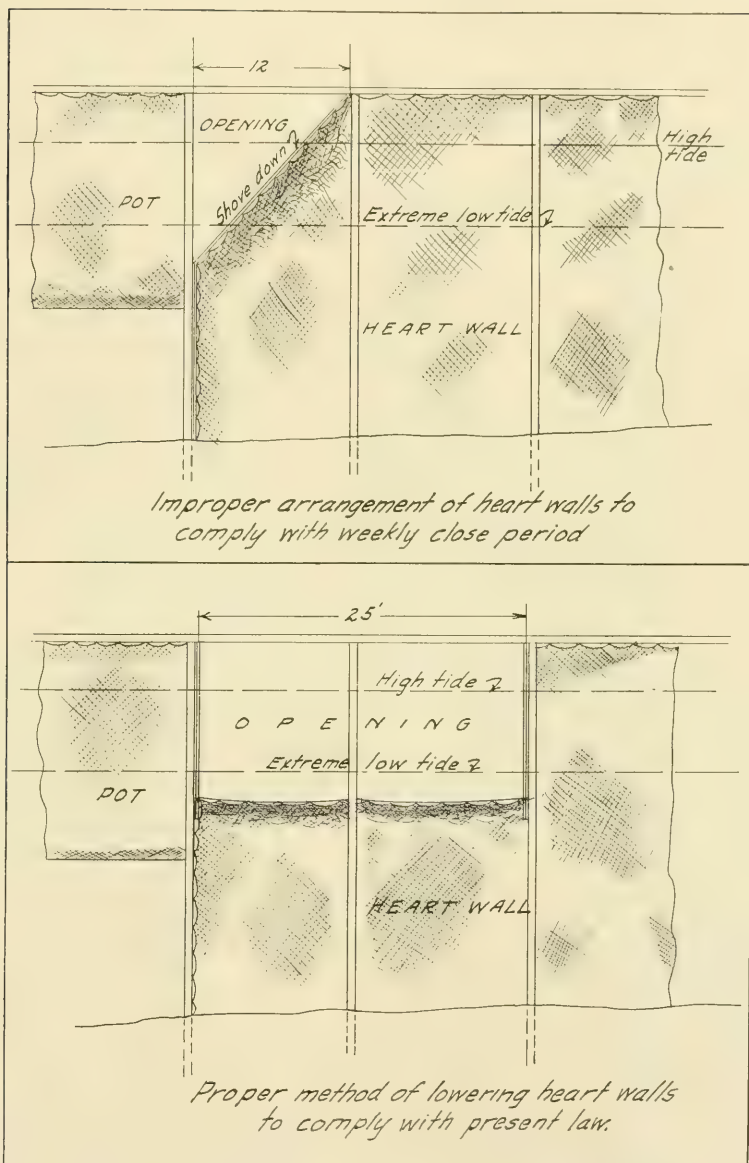 12
OPENING
High
tide
Shove down
POT
Extreme low tide
HEART WALL
Improper arrangement of heart walls to
comply with weekly close period
25'
High tide
OPENING
Extreme low tide
POT
HEART WALL
Proper method of lowering heart walls
to comply with present law.